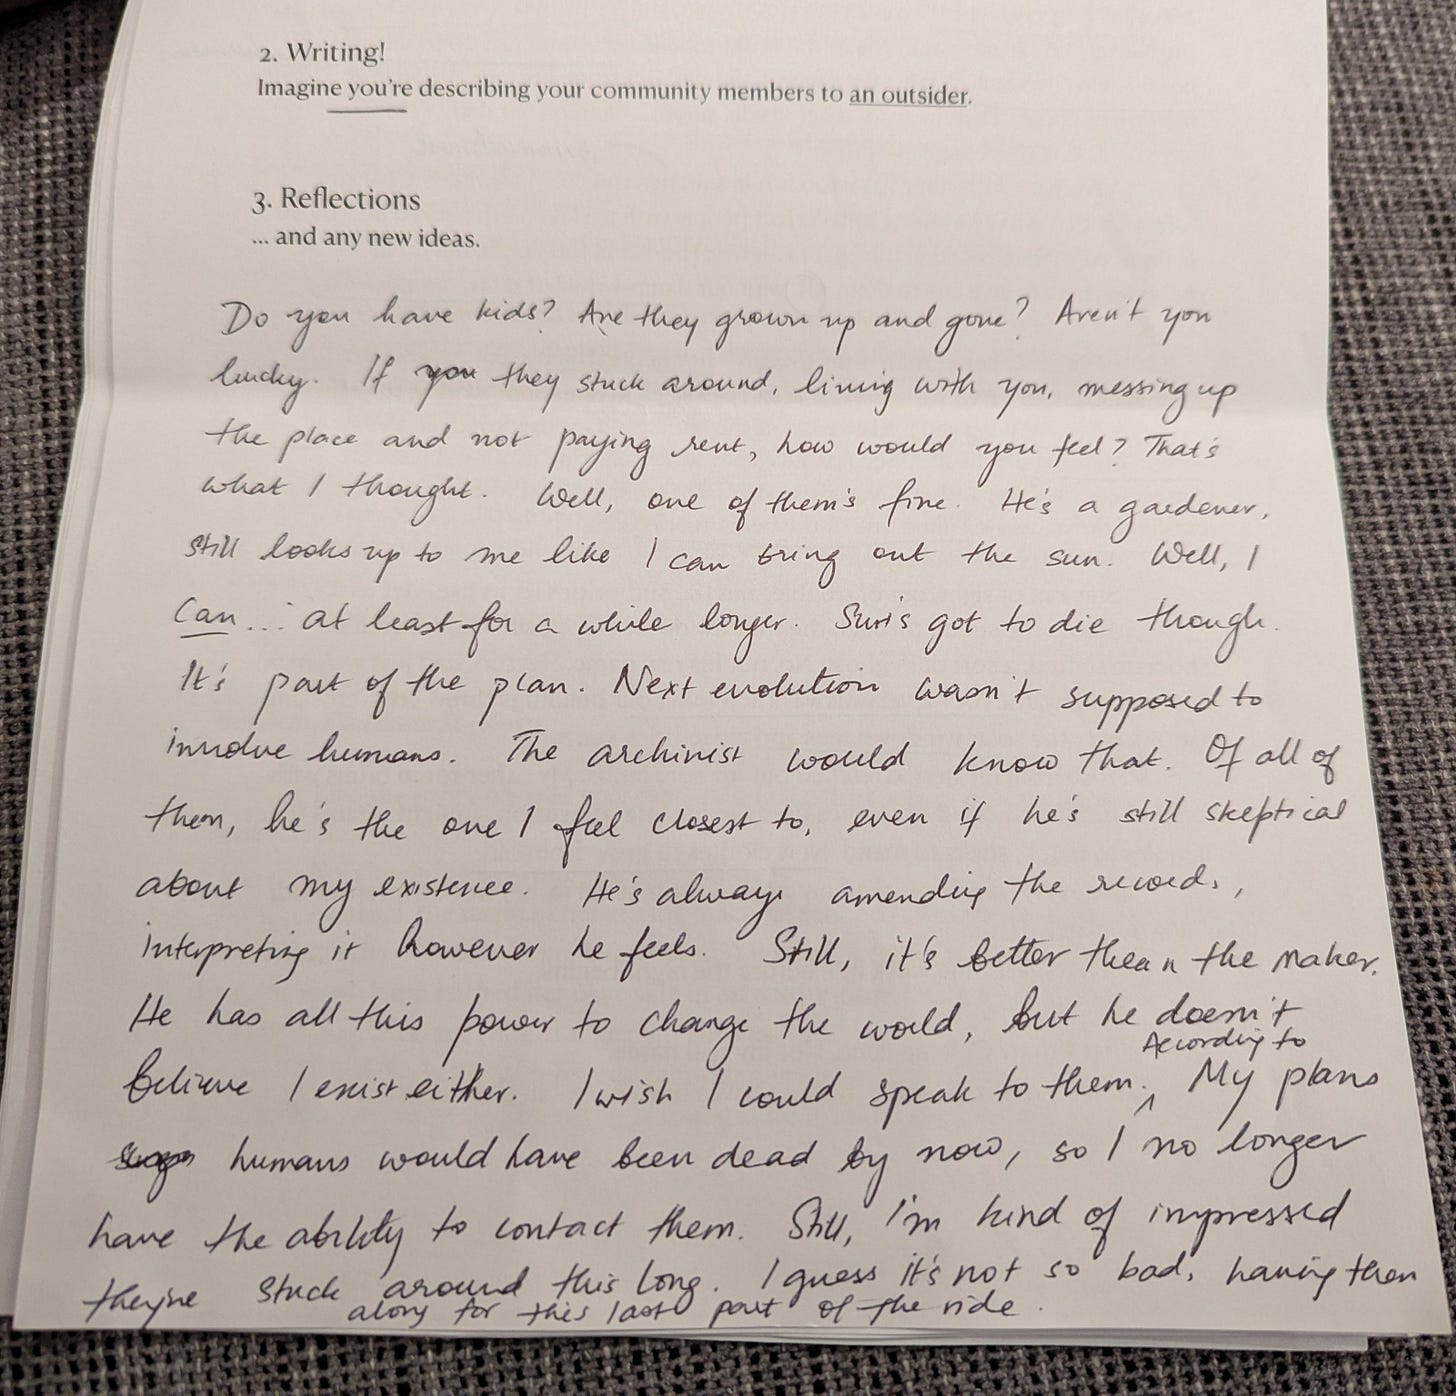 2. Writing!
Imagine you're describing your community members to an outsider.
3. Reflections
... and any new ideas.
Do you have kids? Are they grown up and gone? Aren't you
lucky. If you they stuck around, living with you, messing up
the place and not paying rent, how would you feel? That's
what I thought. Well, one of them's fine. He's a gardener,
still looks up to me like I can bring out the sun. Well, I
can... at least for a while longer. Sun's got to die though.
It's part of the plan. Next evolution wasn't supposed to
involve humans. The archivist would know that. Of all of
them, he's the one I feel closest to, even if he's still skeptical
about my existence. He's always amending the records,
interpreting it however he feels. Still, it's better than the maker.
He has all this power to change the world, but he doesn't
According to
believe I exist either. I wish I could speak to them. ^ My plans
humans would have been dead by now, so I no longer
have the ability to contact them. Still, I'm kind of impressed
they're stuck around this long. I guess it's not so bad, having them
along for this last part of the ride.